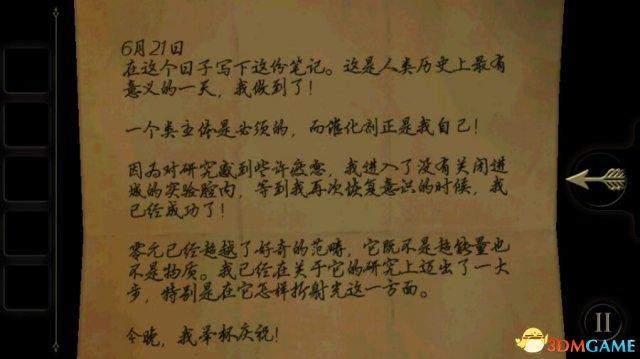 6月21日
在这个日子写下这份笔记。这是人类历史上最有
意义的一天，我做到了！
一个类主体是必须的，而催化剂正是我自己！
因为对研究感到些许疲惫，我进入了没有关闭进
城的实验腔内，等到我再次恢复意识的时候，我
已经成功了！
零元已经超越了好奇的范畴，它既不是超能量也
不是物质。我已经在关于它的研究上迈出了一大
步，特别是在它怎样折射光这一方面。
今晚，我举杯庆祝！
3DMGAME